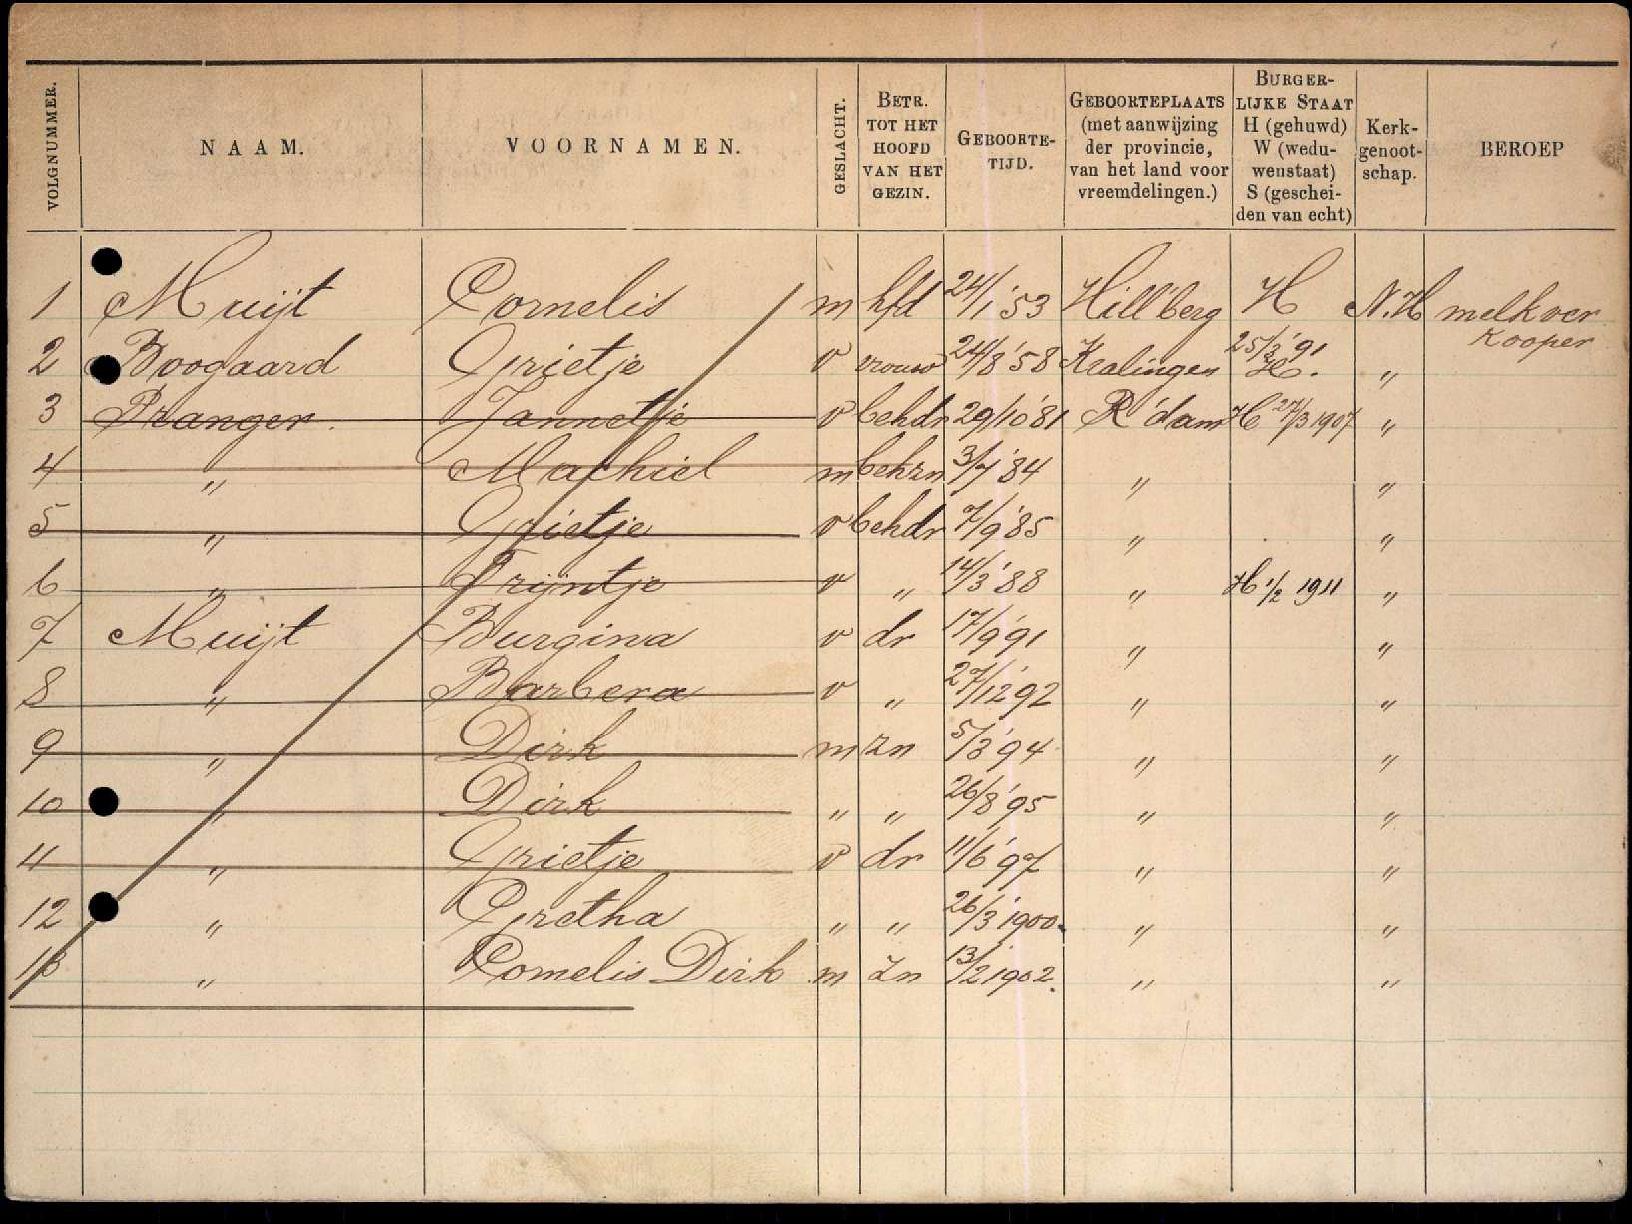 VOLGNUMMER. NAAM. VOORNAMEN. GESLACHT. BETR. TOT HET HOOFD VAN HET GEZIN. GEBOORTE-TIJD. GEBOORTEPLAATS (met aanwijzing der provincie, van het land voor vreemdelingen.) BURGER-LIJKE STAAT H (gehuwd) W (wedu-wenstaat) S (geschei-den van echt) Kerk-genoot-schap. BEROEP
1 Muijt Cornelis m hfd 24/1 '53 Hill'berg H N.H melkver
kooper
2 Boogaard Grietje v vrouw 24/8 '58 Kralingen 25/3 '91 H. "
3 Pranger. Jannetje v behdr 29/10 '81 R'dam H 27/3 1907 "
4 " Machiel m behzn 3/7 '84 " "
5 " Grietje v behdr 7/9 '85 " "
6 " Trijntje v " 14/3 '88 " H 1/2 1911 "
7 Muijt Burgina v dr 17/9 '91 " "
8 " Barbera v " 27/12 '92 " "
9 " Dirk m zn 5/3 '94 " "
10 " Dirk " " 26/8 '95 " "
11 " Grietje v dr 11/6 '97 " "
12 " Gretha " " 26/3 '1900. " "
13 " Cornelis Dirk m zn 13/2 1902. " "